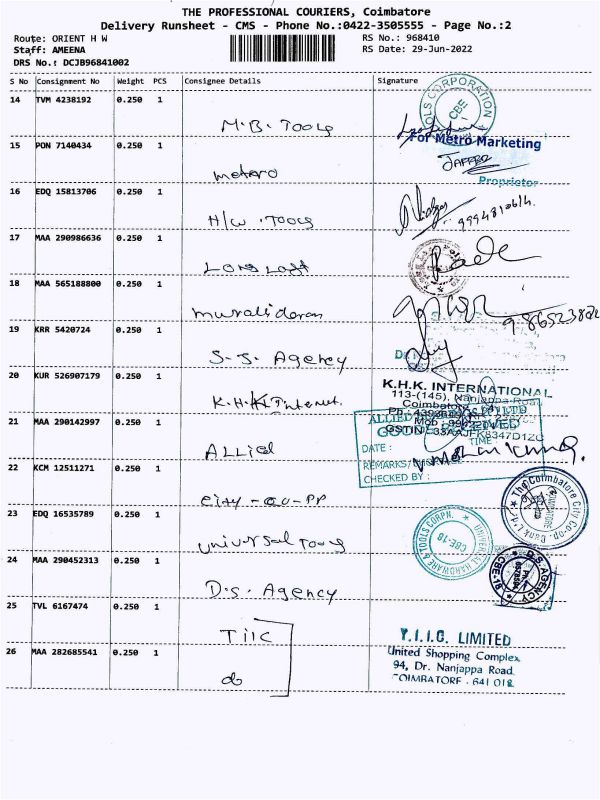 THE PROFESSIONAL COURIERS, Coimbatore
Delivery Runsheet - CMS - Phone No.:0422-3505555 - Page No.:2
Route: ORIENT H W
RS No.: 968410
Staff: AMEENA
RS Date: 29-Jun-2022
DRS No.: DCJB96841002
S No Consignment No Weight PCS Consignee Details Signature
14 TVM 4238192 0.250 1
M.B. Tools
TOOLS CORPORATION CBE
15 PON 7140434 0.250 1
For Metro Marketing
Metero
Proprietor
16 EDQ 15813706 0.250 1
H/W .Tools
17 MAA 290986636 0.250 1
18 MAA 565188800 0.250 1
muralidaran
19 KRR 5420724 0.250 1
S.S. Agency
20 KUR 526907179 0.250 1
K.H.K INTERNATIONAL
113-(145), Nanjappa Road,
Coimbatore
K.H.K Internet.
21 MAA 290142997 0.250 1
ALLIED
DATE :
TIME
REMARKS/
CHECKED BY :
22 KCM 12511271 0.250 1
The Coimbatore City Co-op. Bank Ltd.
city-co-pp
23 EDQ 16535789 0.250 1
UNIVERSAL HARDWARE & TOOLS CORPN. CBE-18
universal Tools
24 MAA 290452313 0.250 1
D.S. AGENCY CBE-18
D.S. Agency
25 TVL 6167474 0.250 1
TIIC
T.I.I.C. LIMITED
26 MAA 282685541 0.250 1
United Shopping Complex
94, Dr. Nanjappa Road.
COIMBATORE - 641 018
do